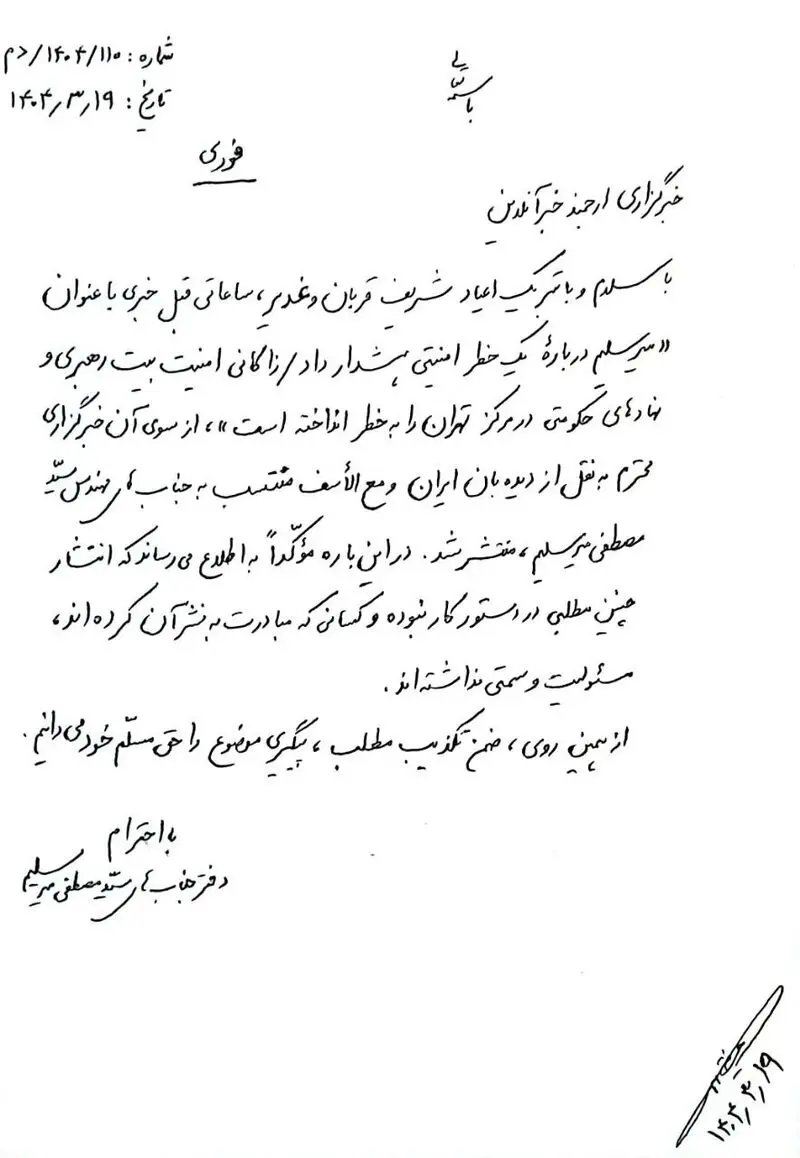 باسمه تعالی
شماره: ۱۴۰۴/۱۱۰/دم
تاریخ: ۱۴۰۴٫۳٫۱۹
فوری
خبرگزاری ارجمند خبرآنلاین
با سلام و با تبریک اعیاد شریف قربان و غدیر، ساعاتی قبل خبری با عنوان
«میرسلیم دربارهٔ یک خطر امنیتی هشدار داد/ زاکانی امنیت بیت رهبری و
نهادهای حکومتی در مرکز تهران را به خطر انداخته است»، از سوی آن خبرگزاری
محترم به نقل از دیده بان ایران و مع الأسف منتسب به جناب آقای مهندس سیّد
مصطفی میرسلیم، منتشر شد. در این باره مؤکّداً به اطلاع می رساند که انتشار
چنین مطلبی در دستور کار نبوده و کسانی که مبادرت به نشر آن کرده اند،
مسئولیت و سمتی نداشته اند.
از همین روی، ضمن تکذیب مطلب، پیگیری موضوع را حق مسلّم خود می دانیم.
با احترام
دفتر جناب آقای سیّد مصطفی میرسلیم
۱۴۰۴٫۳٫۱۹